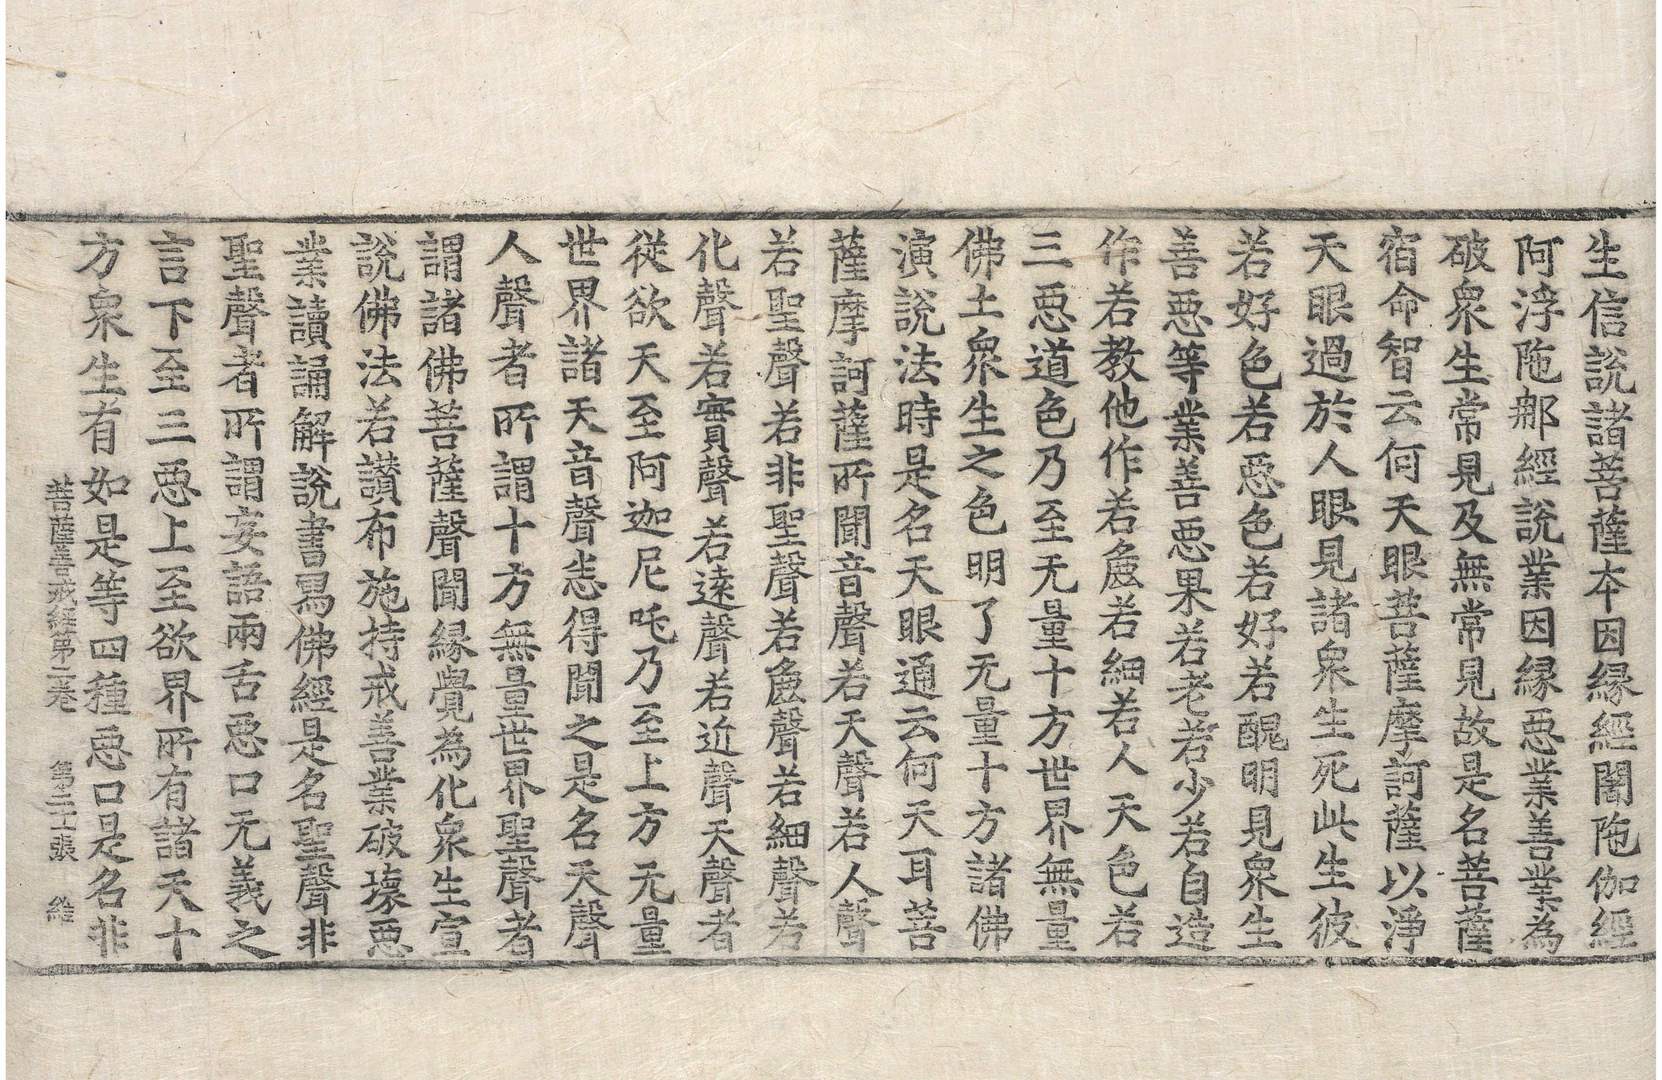 生信說諸菩薩本因縁經闍陁伽經
阿浮陁𨚗經說業因縁惡業善業為
破衆生常見及無常見故是名菩薩
宿命智云何天眼菩薩摩訶薩以淨
天眼過於人眼見諸衆生生死此生彼
若好色若惡色若好若醜明見衆生
善惡等業善惡果若老若少若自造
作若教他作若麁若細若人天色若
三惡道色乃至无量十方世界無量
佛土衆生之色明了无量十方諸佛
演說法時是名天眼通云何天耳菩
薩摩訶薩所聞音聲若天聲若人聲
若聖聲若非聖聲若麁聲若細聲若
化聲若實聲若遠聲若近聲天聲者
從欲天至阿迦尼吒乃至上方无量
世界諸天音聲悉得聞之是名天聲
人聲者所謂十方無量世界聖聲者
謂諸佛菩薩聲聞縁覺為化衆生宣
說佛法若讃布施持戒善業破壞惡
業讀誦解說書寫佛經是名聖聲非
聖聲者所謂妄語兩舌惡口无義之
言下至三惡上至欲界所有諸天十
方衆生有如是等四種惡口是名非
菩薩善戒經第二卷 第二十張 維